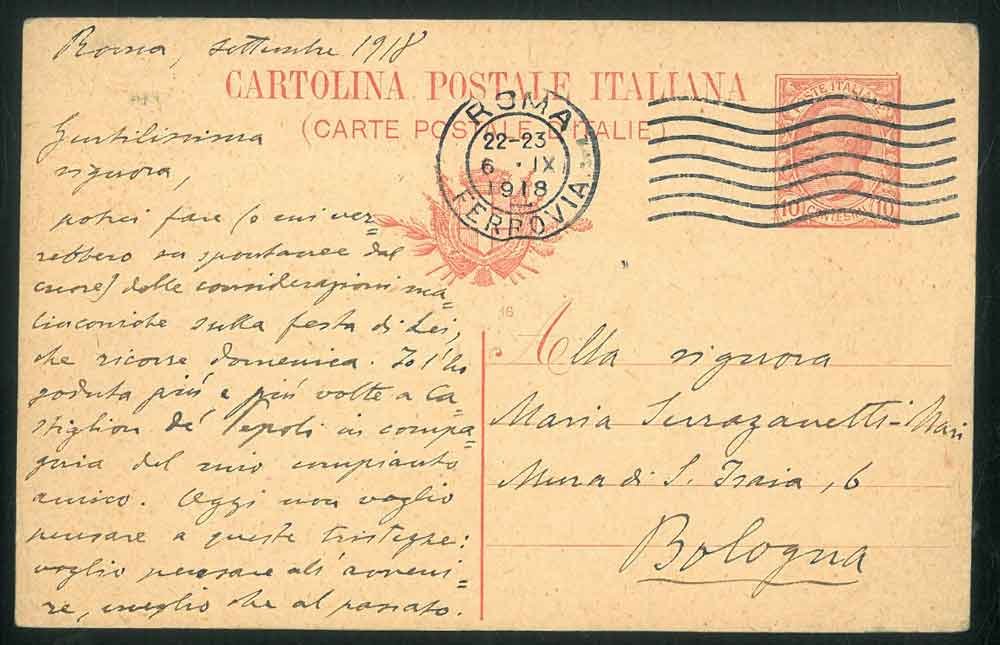 Roma, settembre 1918
CARTOLINA POSTALE ITALIANA
(CARTE POSTALE D'ITALIE)
POSTE ITALIANE
10 CENTESIMI 10
ROMA
22-23
6 · IX
1918
FERROVIA
16
Gentilissima
signora,
potrei fare (e mi ver=
rebbero su spontanee dal
cuore) delle considerazioni ma=
linconiche sulla festa di Lei,
che ricorse domenica. Io l'ho
goduta più e più volte a Ca=
stiglion de' Pepoli in compa=
gnia del mio compianto
amico. Oggi non voglio
pensare a queste tristezze:
voglio pensare all' avveni=
re, meglio che al passato.
Alla signora
Maria Serrazanetti-
Mura di S. Isaia, 6
Bologna